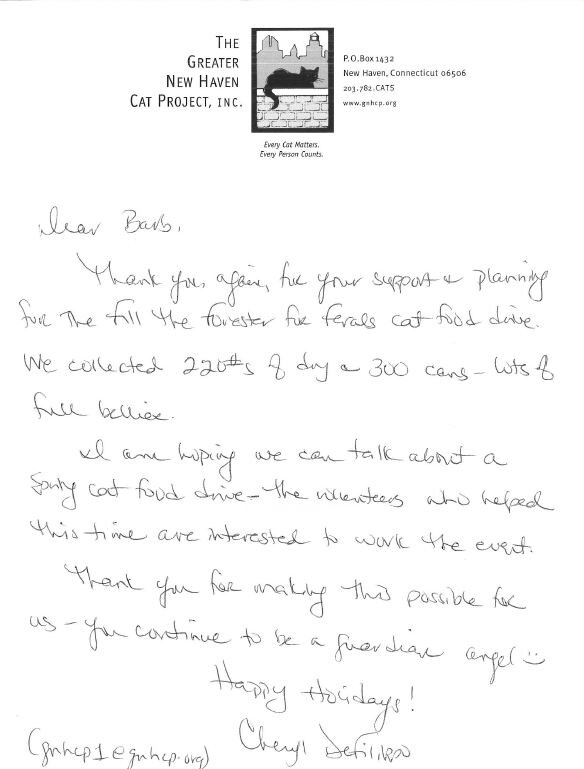 The
Greater
New Haven
Cat Project, Inc.
P.O.Box 1432
New Haven, Connecticut 06506
203.782.CATS
www.gnhcp.org
Every Cat Matters.
Every Person Counts.
Dear Barb,
Thank you, again, for your support & planning
for the Fill the Forester for Ferals cat food drive.
We collected 220#s of dry & 300 cans – lots of
full bellies.
I am hoping we can talk about a
Spring cat food drive – the volunteers who helped
this time are interested to work the event.
Thank you for making this possible for
us – you continue to be a guardian angel
Happy Holidays!
Cheryl DeFilippo
(gnhcp1@gnhcp.org)